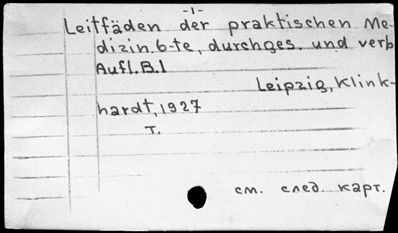 -1-
Leitfäden der praktischen Me-
dizin. 6-te, durchges. und verb
Aufl. B.1
Leipzig, Klink-
hardt, 1927
T.
см. след. карт.